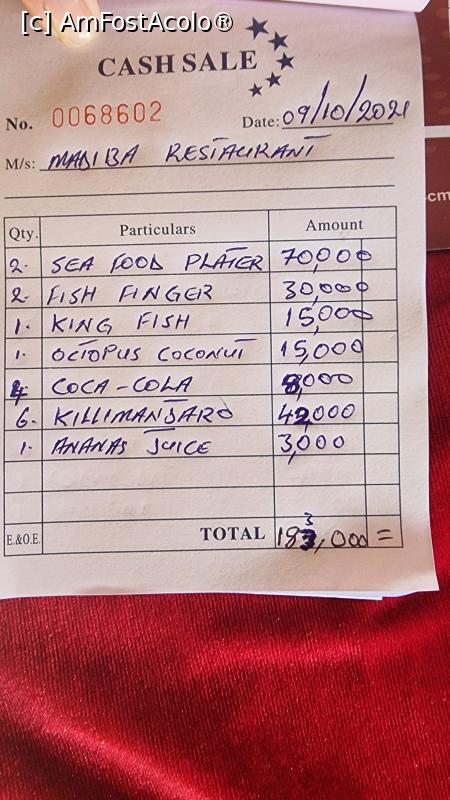 [c] AmFostAcolo®
CASH SALE
No. 0068602 Date: 09/10/2021
M/s: MADIBA RESTAURANT
Qty. Particulars Amount
2. SEA FOOD PLATER 70,000
2. FISH FINGER 30,000
1. KING FISH 15,000
1. OCTOPUS COCONUT 15,000
4. COCA-COLA 8,000
6. KILLIMANJARO 42000
1. ANANAS JUICE 3,000
E.&O.E. TOTAL 183,000=